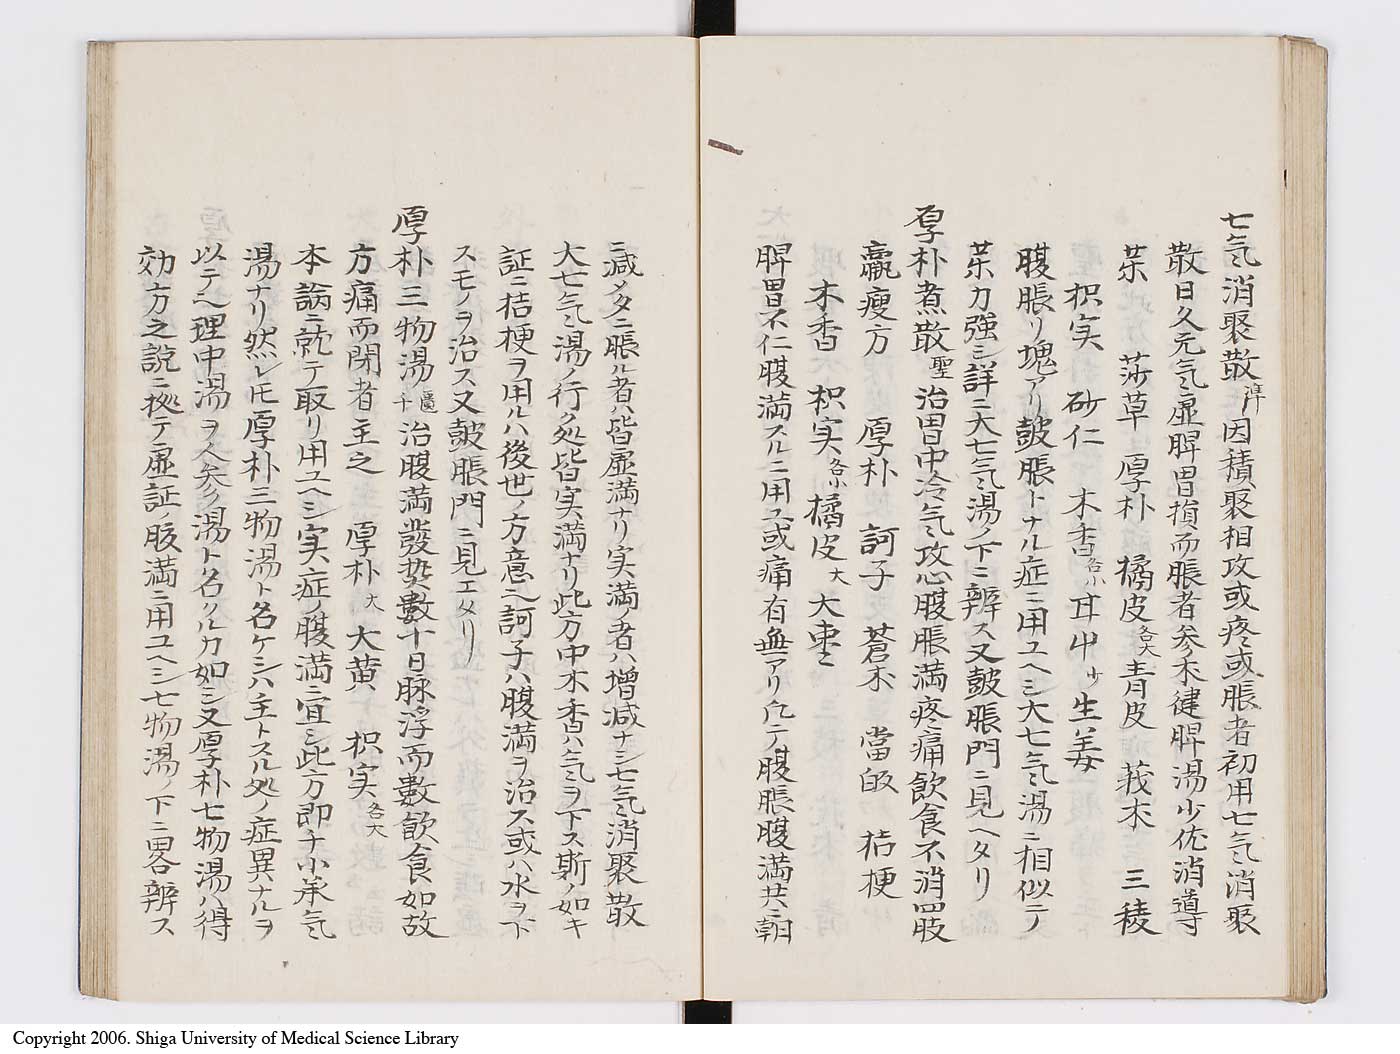 七気消聚散 淳 因積聚相攻或疼或脹者初用七気消聚
散日久元気虚脾胃損而脹者参朮健脾湯少佐消導
茱 莎草 厚朴 橘皮各大 青皮 莪朮 三稜
枳実 砂仁 木香各小 甘艸少 生姜
腹脹リ塊アリ皷脹トナル症ニ用ユヘシ大七気湯ニ相似テノ
茱力強シ詳ニ大七気湯ノ下ニ辨ス又皷脹門ニ見ヘタリ
厚朴煮散 聖 治胃中冷気攻心腹脹満疼痛飲食不消四肢
羸瘦方 厚朴 訶子 蒼朮 當皈 桔梗
木香 枳実各小 橘皮大 大棗
脾胃不仁腹満スルニ用ユ或痛有無アリ凡テ腹脹腹満共ニ朝
ニ減メタニ脹ル者ハ皆虚満ナリ実満ノ者ハ増減ナシ七気消聚散
大七気湯ノ行ク処皆実満ナリ此方中木香ハ気ヲ下ス斯ノ如キ
証ニ桔梗ヲ用ルハ後世ノ方意也訶子ハ腹満ヲ治ス或ハ水ヲ下
スモノヲ治ス又皷脹門ニ見エタリ
厚朴三物湯 匱千 治腹満發熱數十日脉浮而數飲食如故
方痛而閉者主之 厚朴大 大黄 枳実各大
本論ニ就テ取リ用ユヘシ実症ノ腹満ニ宜シ此方即チ小承気
湯ナリ然レ𪜈厚朴三物湯ト名ケシハ主トスル処ノ症異ナルヲ
以テ也理中湯ヲ人参湯ト名クルカ如シ又厚朴七物湯ハ得
効方之説ニ拠テ虚証腹満ニ用ユヘシ七物湯ノ下ニ畧辨ス
Copyright 2006. Shiga University of Medical Science Library